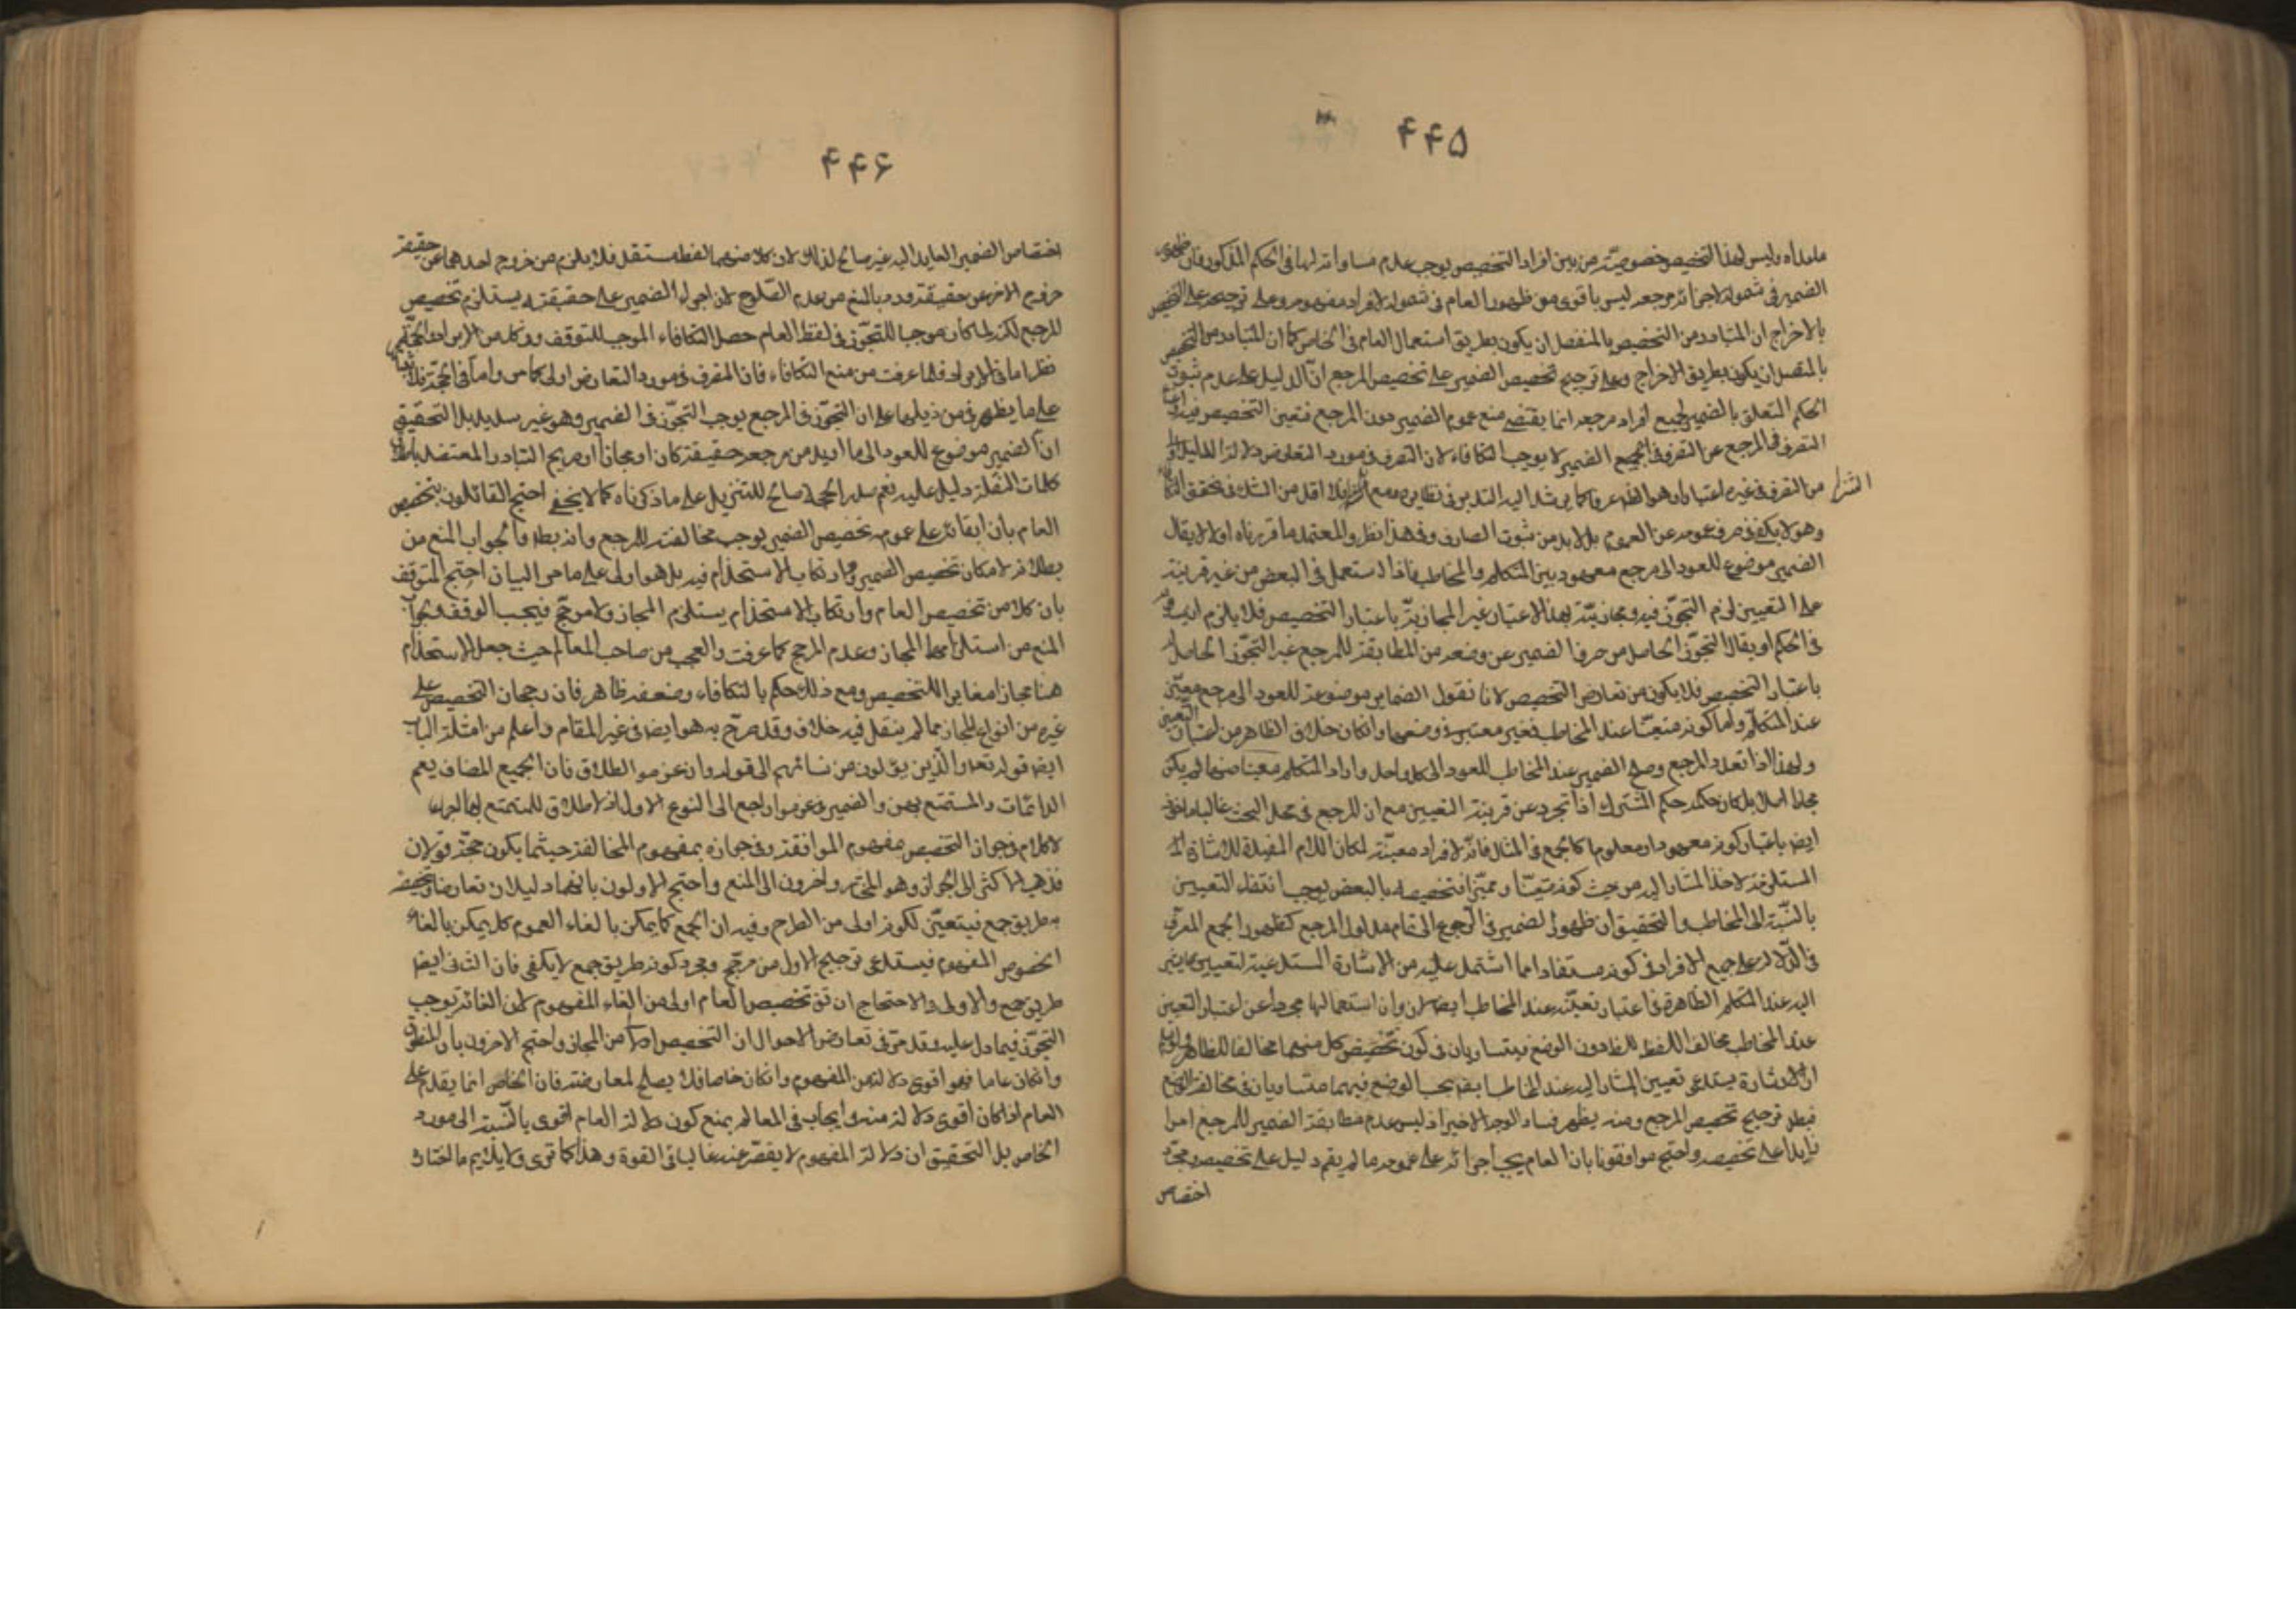 ۴۴۵
ماعداه وليس لهذا التخصيص خصوصية من بين افراد التخصيص يوجب عدم مساواته لها فى الحكم المذكور فان ظهور
الضمير فى شموله لاجزاء مرجعه ليس باقوى من ظهور العام فى شموله لافراد مفهومه وعلى ترجيحه على التخصيص
بالاخراج ان المتبادر من التخصيص بالمنفصل ان يكون بطريق استعمال العام فى الخاص كما ان المتبادر من التخصيص
بالمتصل ان يكون بطريق الاخراج وعلى ترجيح تخصيص الضمير على تخصيص المرجع ان الدليل على عدم ثبوت
الحكم المتعلق بالضمير لجميع افراد مرجعه انما يقتضى منع عموم الضمير دون المرجع فتعين التخصيص فيه
التصرف فى المرجع عن التصرف فى الضمير لا يوجب التكافاء لان التصرف فى مورد التعارض دلالة الدليل
من التصرف فى غيره اعتبارا وهو الظ عرفا كما يرشد اليه التدبر فى نظايره ومع فلا اقل من الشك فى تحقق
وهو لا يكفى فى صرف عمومه عن العموم بل لا بد من ثبوت الصارف وفى هذا نظر والمعتمد ما قررناه اولا لا يقال
الضمير موضوع للعود الى مرجع معهود بين المتكلم والمخاطب فاذا استعمل فى البعض من غير قرينة
على التعيين لزم التجوز فيه ومجازيته بهذا الاعتبار غير المجازية باعتبار التخصيص فلا يلزم
فى الحكم او يقال التجوز الحاصل من صرف الضمير عن وضعه من المطابقة للمرجع غير التجوز الحاصل
باعتبار التخصيص فلا يكون من تعارض التخصيص لانا نقول الضماير موضوعة للعود الى مرجع معين
عند المتكلم واما كونه متعينا عند المخاطب فغير معتبر فى وضعها وان كان خلاف الظاهر من اعتبار التعيين
ولهذا اذا تعدد المرجع وصلح الضمير عند المخاطب للعود الى كل واحد واراد المتكلم معينا منها لم يكن
مجازا اصلا بل كان حكمه حكم المشترك اذا تجرد عن قرينة التعيين مع ان المرجع فى محل البحث غالبا
ايض باعتبار كونه معهودا ومعلوما كالجمع فى المثال فانه لافراد معينة لمكان اللام المفيدة للاشارة
المستلزمة لاخذ المشار اليه من حيث كونه متعينا ومميزا فتخصيصه بالبعض يوجب انتفاء التعيين
بالنسبة الى المخاطب والتحقيق ان ظهور الضمير فى الرجوع الى تمام مدلول المرجع كظهور الجمع المعرف
فى الدلالة على جميع الافراد فى كونه مستفادا مما اشتمل عليه من الاشارة المستدعية لتعيين
اليه عند المتكلم الظاهرة فى اعتبار تعينه عند المخاطب ايضا وان استعمالها مجردا عن اعتبار التعيين
عند المخاطب مخالف اللفظ للظ دون الوضع فيتساويان فى كون تخصيص كل منهما مخالفا للظاهر
ان الاشارة يستدعى تعيين المشار اليه عند المخاطب ايض بحسب الوضع فيهما متساويان فى مخالفة الوضع
فبطل ترجيح تخصيص المرجع ومنه يظهر فساد الوجه الاخير اذ ليس عدم مطابقة الضمير للمرجع امرا
زايدا على تخصيصه واحتج موافقونا بان العام يجب اجراؤه على عمومه ما لم يقم دليل على تخصيصه ومجرد
اختصاص
۴۴۶
اختصاص الضمير العايد اليه غير صالح لذلك لان كلا منهما لفظ مستقل فلا يلزم من خروج احدهما عن حقيقته
خروج الاخر عن حقيقته ورد بالمنع من عدم الصلوح لان اجراء الضمير على حقيقته يستلزم تخصيص
المرجع لكن لما كان موجبا للتجوز فى لفظ العام حصل التكافاء الموجب للتوقف وفى كل من الايراد والحجة
نظر اما فى الايراد فلما عرفت من منع التكافاء فان التصرف فى مورد التعارض اولى كما مر واما فى الحجة
على ما يظهر من ذيلها على ان التجوز فى المرجع يوجب التجوز فى الضمير وهو غير سديد بل التحقيق
ان الضمير موضوع للعود الى ما اريد من مرجعه حقيقة كان او مجازا وصريح التبادر المعتضد
كلمات النقلة دليل عليه نعم صدر الحجة صالح للتنزيل على ما ذكرناه كما لا يخفى احتج القائلون بتخصيص
العام بان ابقائه على عمومه مع تخصيص الضمير يوجب مخالفته للمرجع وانه بط والجواب المنع من
بطلانه لامكان تخصيص الضمير وارتكاب الاستخدام فيه بل هو اولى على ما مر البيان احتج المتوقف
بان كلا من تخصيص العام وارتكاب الاستخدام يستلزم المجاز ولا مرجح فيجب الوقف والجواب
المنع من استلزامهما المجاز وعدم المرجح كما عرفت والعجب من صاحب المعالم حيث جعل الاستخدام
هنا مجازا مغايرا للتخصيص ومع ذلك حكم بالتكافاء وضعفه ظاهر فان رجحان التخصيص على
غيره من انواع المجاز مما لم ينقل فيه خلاف وقد صرح به هو ايضا فى غير المقام واعلم من امثلة الباب
ايض قوله تعالى والذين يؤلون من نسائهم الى قوله وان عزموا الطلاق فان الجمع المضاف يعم
الدائمات والمستمتع بهن والضمير فى عزموا راجع الى النوع الاول اذ لا طلاق للمتمتع بها
لا كلام فى جواز التخصيص بمفهوم الموافقة وفى جوازه بمفهوم المخالفة حيثما يكون حجة قولان
فذهب الاكثر الى الجواز وهو المختار واخرون الى المنع واحتج الاولون بانهما دليلان تعارضا وتخصيصه
به طريق جمع فيتعين لكونه اولى من الطرح وفيه ان الجمع كما يمكن بالغاء العموم كك يمكن بالغاء
الخصوص المفهوم فيستدعى ترجيح الاول من مرجح ومجرد كونه طريق جمع لا يكفى فان الثانى ايض
طريق جمع والاولى فى الاحتجاج ان تخصيص العام اولى من الغاء المفهوم لان الغائه يوجب
التجوز فيما دل عليه وقد مر فى تعارض الاحوال ان التخصيص اولى من المجاز واحتج الاخرون بان المنطوق
وان كان عاما فهو اقوى دلالة من المفهوم وان كان خاصا فلا يصلح لمعارضته فان الخاص انما يقدم على
العام اذا كان اقوى دلالة منه واجاب فى المعالم بمنع كون دلالة العام اقوى بالنسبة الى مورد
الخاص بل التحقيق ان دلالة المفهوم لا يقصر عنه غالبا فى القوة وهذا كما ترى لا يلايم ما اختاره